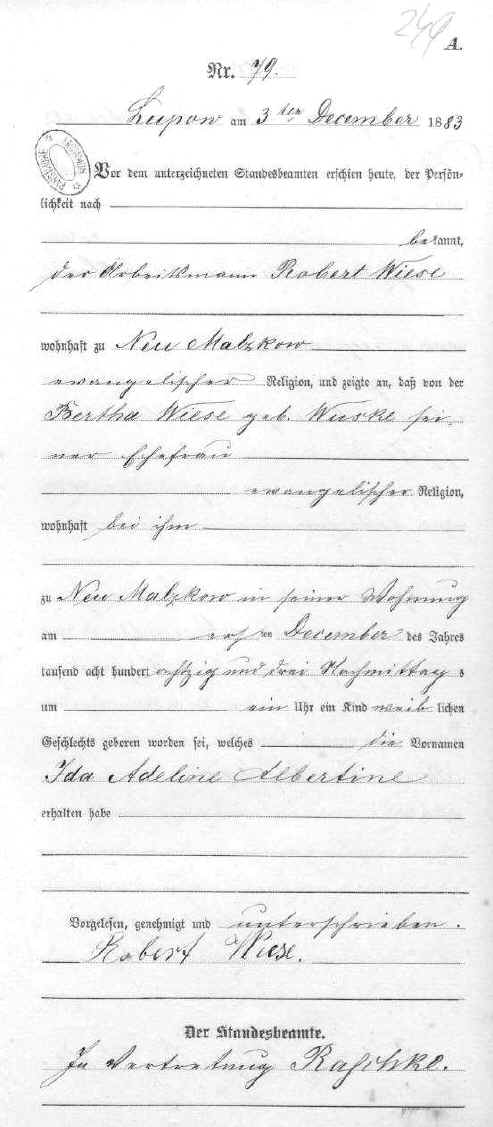 A.
Nr. 79.
Lupow am 3ten December 1883
Vor dem unterzeichneten Standesbeamten erschien heute, der Persön-
lichkeit nach
bekannt,
der Arbeitsmann Robert Wiese
wohnhaft zu Neu Malzkow
evangelischer Religion, und zeigte an, daß von der
Bertha Wiese geb. Wuske sei-
ner Ehefrau
evangelischer Religion,
wohnhaft bei ihm
zu Neu Malzkow in seiner Wohnung
am ersten December des Jahres
tausend acht hundert achtzig und drei Nachmittags
um ein Uhr ein Kind weiblichen
Geschlechts geboren worden sei, welches die Vornamen
Ida Adeline Albertine
erhalten habe
Vorgelesen, genehmigt und unterschrieben.
Robert Wiese.
Der Standesbeamte.
In Vertretung Raschke.